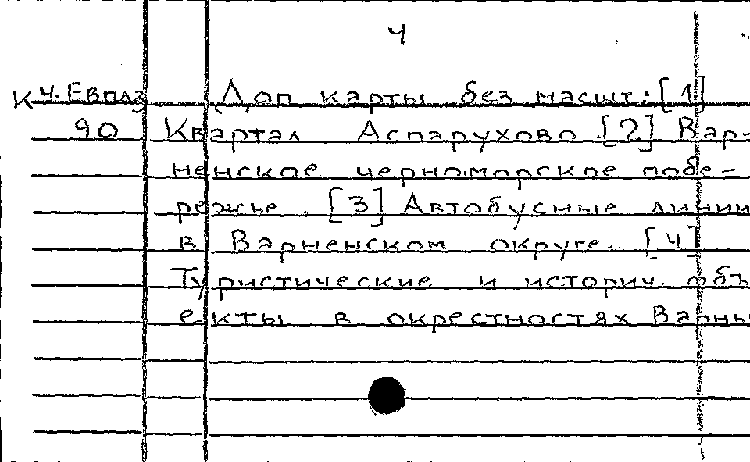 4
К ч. Евпаз Доп карты без масшт: [1]
90 Квартал Аспарухово [2] Вар-
ненское черноморское побе-
режье [3] Автобусные линии
в Варненском округе. [4]
Туристические и историч. объ
екты в окрестностях Варны